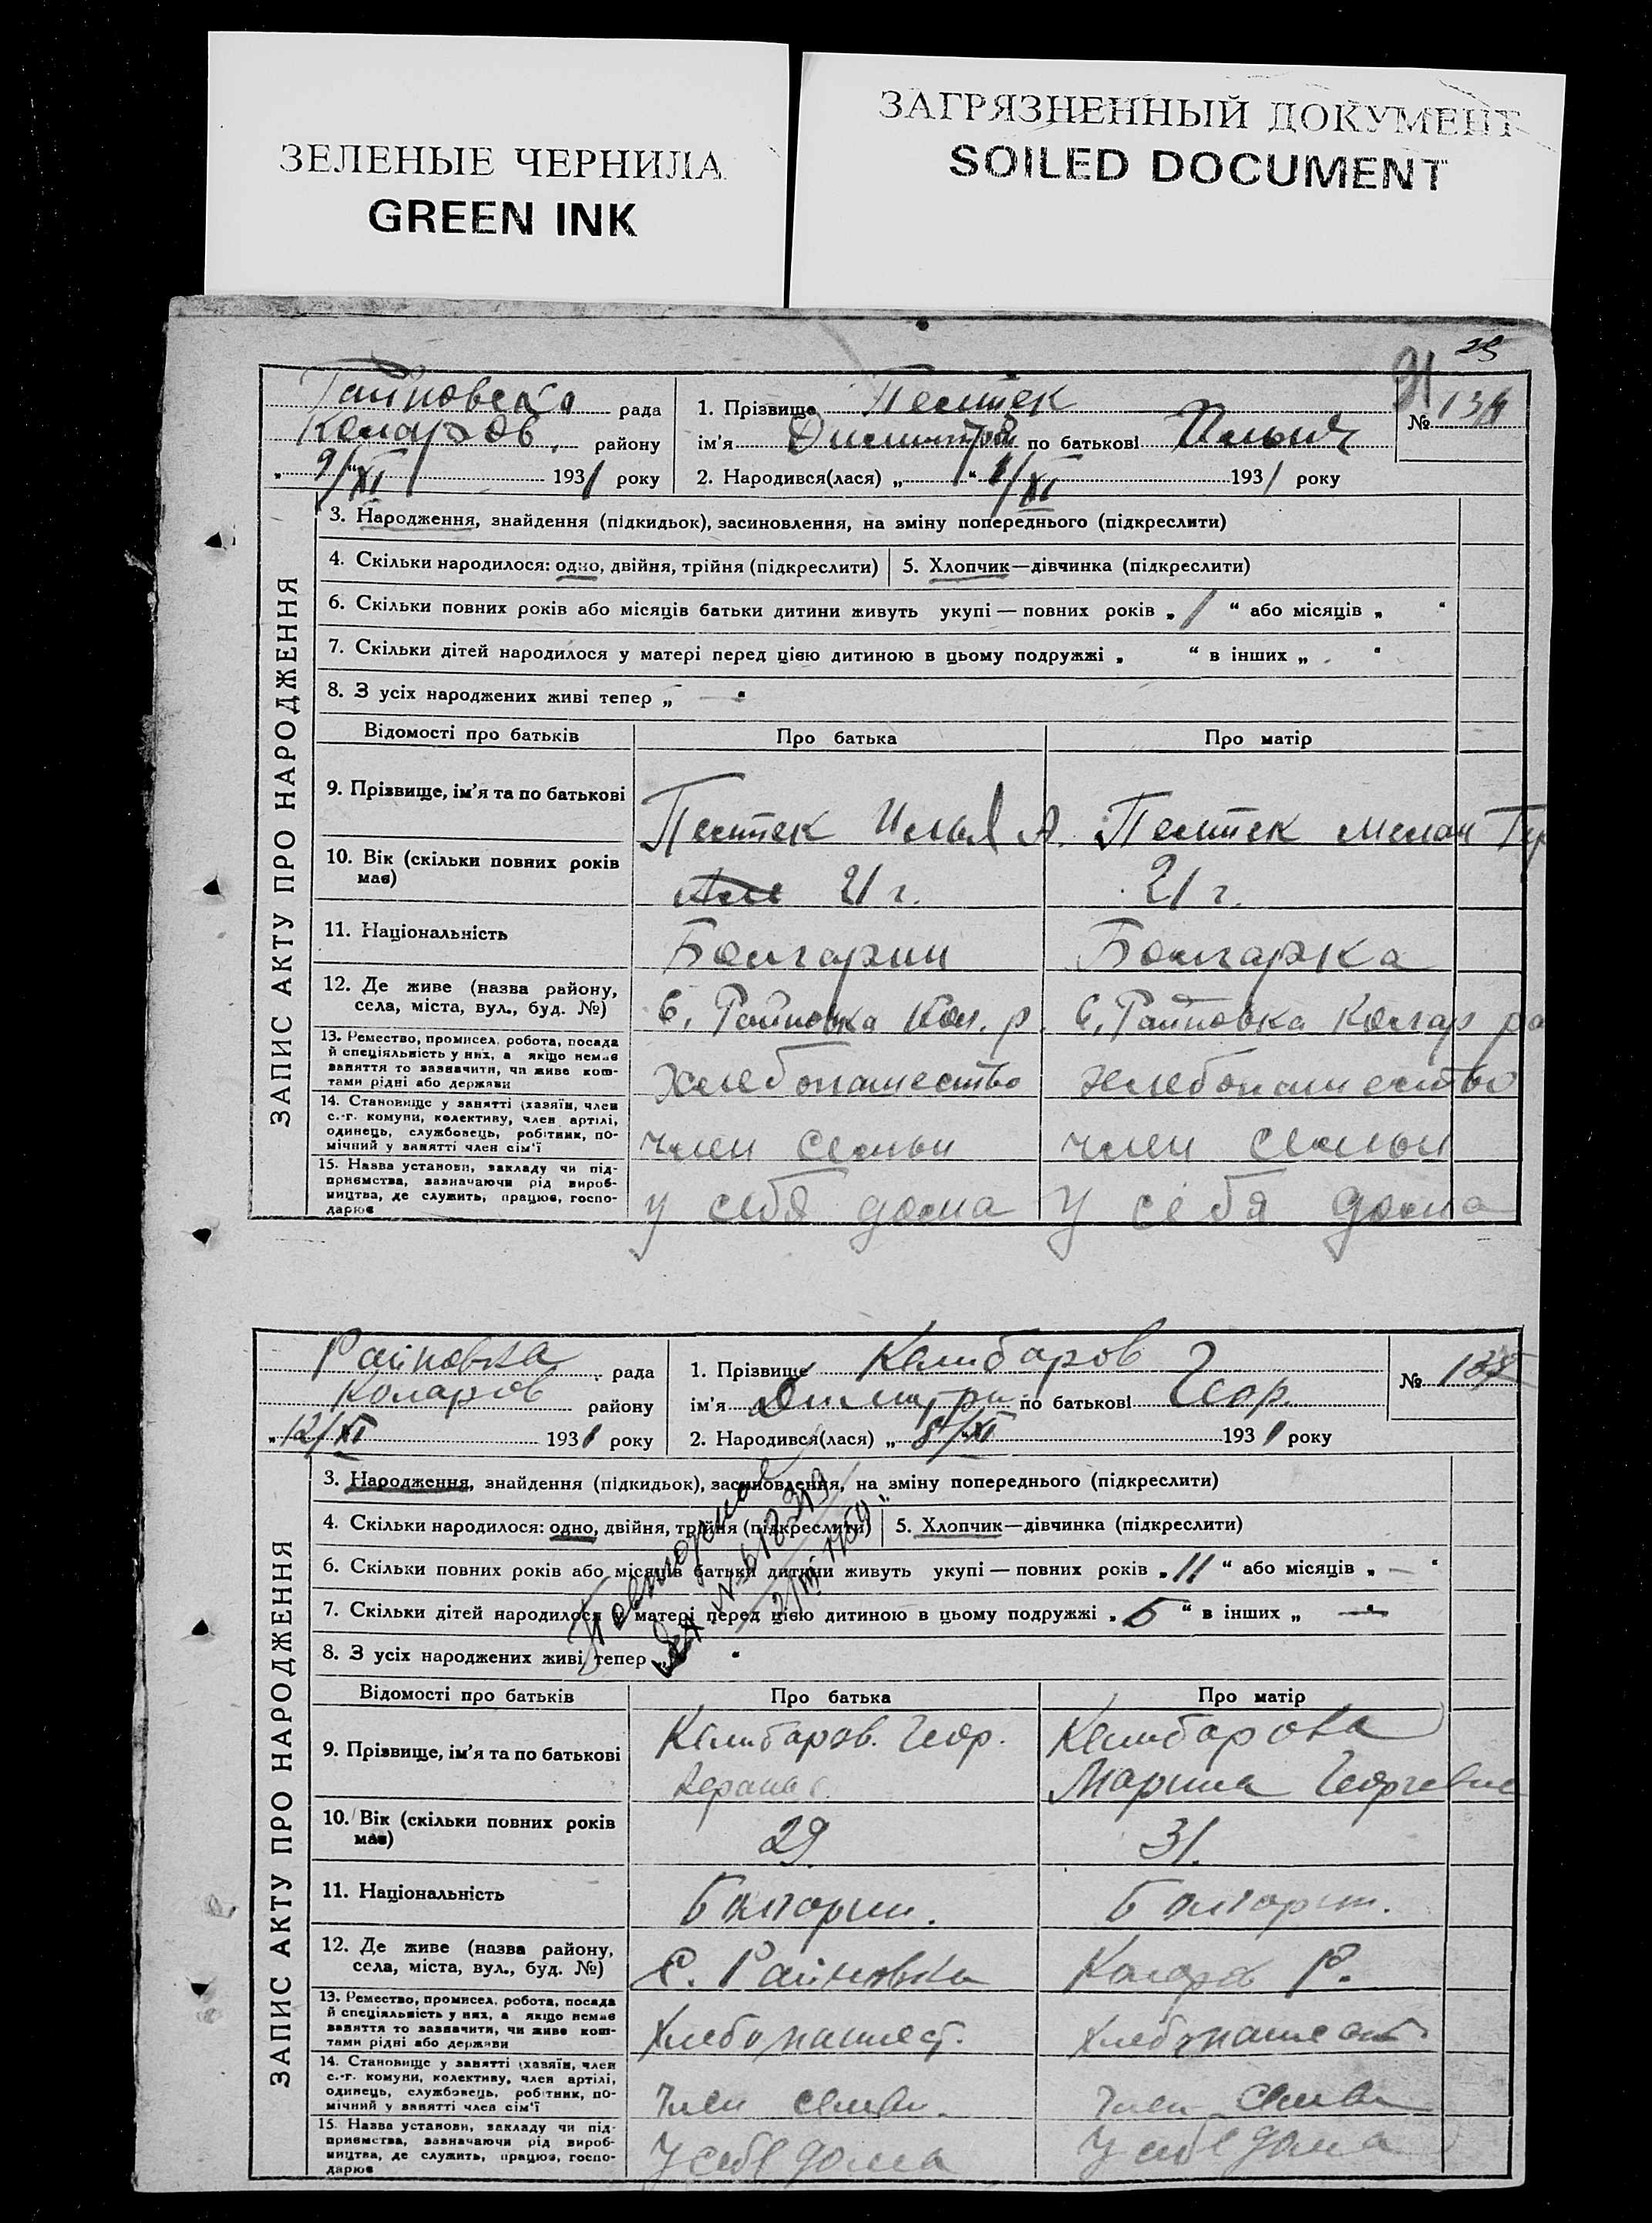 ЗЕЛЕНЫЕ ЧЕРНИЛА
GREEN INK
ЗАГРЯЗНЕННЫЙ ДОКУМЕНТ
SOILED DOCUMENT
91 23
Райновска рада
Коларов. району
9/XI 1931 року
1. Прізвище Пейтек
ім'я Димитрий по батькові Ильич
2. Народився(лася) „ “ 1/XI 1931 року
№ 134
ЗАПИС АКТУ ПРО НАРОДЖЕННЯ
3. Народження, знайдення (підкидьок), засиновлення, на зміну попереднього (підкреслити)
4. Скільки народилося: одно, двійня, трійня (підкреслити) 5. Хлопчик—дівчинка (підкреслити)
6. Скільки повних років або місяців батьки дитини живуть укупі — повних років „ 1 “ або місяців „ “
7. Скільки дітей народилося у матері перед цією дитиною в цьому подружжі „ “ в інших „ “
8. З усіх народжених живі тепер „ — “
Відомості про батьків Про батька Про матір
9. Прізвище, ім'я та по батькові
Пейтек Илья А. Пейтек
10. Вік (скільки повних років має)
21 г. 21 г.
11. Національність
Болгарин Болгарка
12. Де живе (назва району, села, міста, вул., буд. №)
С. Райновка Кол. р. С. Райновка Колар ра
13. Ремество, промисел, робота, посада й спеціяльність у них, а якщо немає заняття то зазначити, чи живе коштами рідні або держави
Хлебопашество хлебопашество
14. Становище у занятті (хазяїн, член с.-г. комуни, колективу, член артілі, одинець, службовець, робітник, помічний у занятті член сім'ї
член семьи член семьи
15. Назва установи, закладу чи підприємства, зазначаючи рід виробництва, де служить, працює, господарює
у себя дома У себя дома
Райновка рада
Коларов району
„12/XI 1931 року
1. Прізвище Келибаров
ім'я Димитри по батькові Геор.
2. Народився(лася) „ 8/XI 1931 року
№ 135
ЗАПИС АКТУ ПРО НАРОДЖЕННЯ
3. Народження, знайдення (підкидьок), засиновлення, на зміну попереднього (підкреслити)
4. Скільки народилося: одно, двійня, трійня (підкреслити) 5. Хлопчик—дівчинка (підкреслити)
6. Скільки повних років або місяців батьки дитини живуть укупі — повних років „ 11 “ або місяців „ — “
7. Скільки дітей народилося у матері перед цією дитиною в цьому подружжі „ 5 “ в інших „ — “
8. З усіх народжених живі тепер „ “
Повторное
Відомості про батьків Про батька Про матір
9. Прізвище, ім'я та по батькові
Келибаров. Геор. Келибарова
Марина Георгевна
10. Вік (скільки повних років має)
29. 31.
11. Національність
Болгарин. Болгарин.
12. Де живе (назва району, села, міста, вул., буд. №)
С. Райновка Коларов Р.
13. Ремество, промисел, робота, посада й спеціяльність у них, а якщо немає заняття то зазначити, чи живе коштами рідні або держави
Хлебопашест. хлебопашест
14. Становище у занятті (хазяїн, член с.-г. комуни, колективу, член артілі, одинець, службовець, робітник, помічний у занятті член сім'ї
Член семьи. Член семьи
15. Назва установи, закладу чи підприємства, зазначаючи рід виробництва, де служить, працює, господарює
У себе дома У себе дома